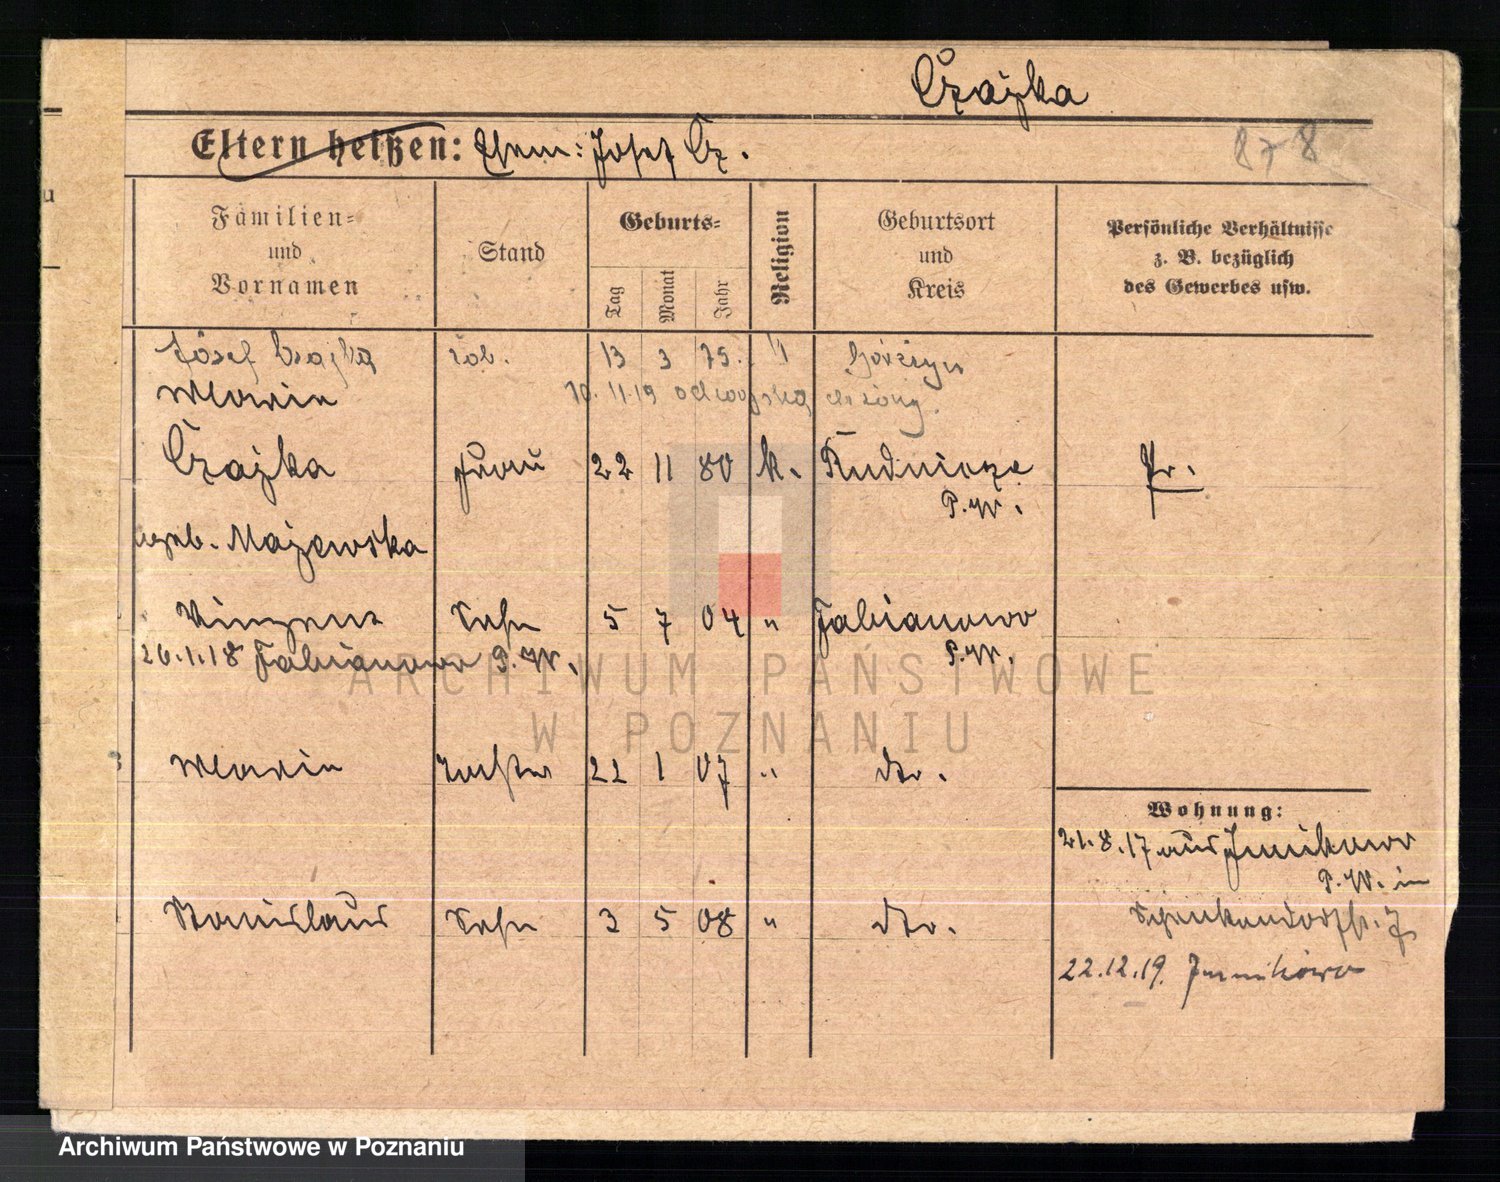 Czajka
Eltern heißen: Ehem: Josef Cz.
878
Familien- und Vornamen
Stand
Geburts-
Tag
Monat
Jahr
Religion
Geburtsort und Kreis
Persönliche Verhältnisse
z. B. bezüglich
des Gewerbes usw.
Józef Czajka rob. 13 3 75.
Maria 10.11.19 od wojska
Czajka Frau 22 11 80 k. Rudnicze Pr.
P.W.
geb. Majewska
Vinzent Sohn 5 7 04 " Fabianowo
26.1.18 Fabianowo P.W. P.W.
Maria Tochter 22 1 07 " dto.
Wohnung:
21.8.17 aus Junikowo
P.W. in
Stanislaus Sohn 3 5 08 " dto. Schenkendorfstr. 7
22.12.19. Junikowo
ARCHIWUM PAŃSTWOWE
W POZNANIU
Archiwum Państwowe w Poznaniu